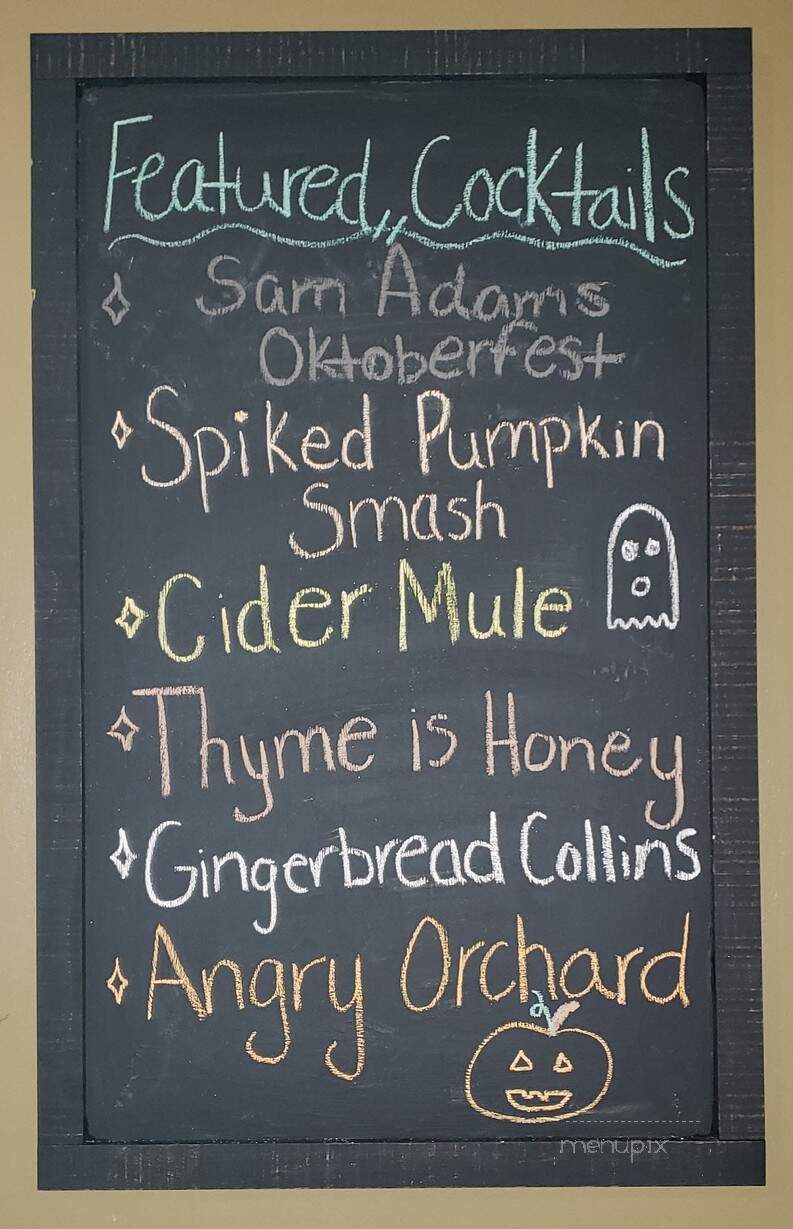 Featured Cocktails
Sam Adams
Oktoberfest
Spiked Pumpkin
Smash
Cider Mule
Thyme is Honey
Gingerbread Collins
Angry Orchard
menupix